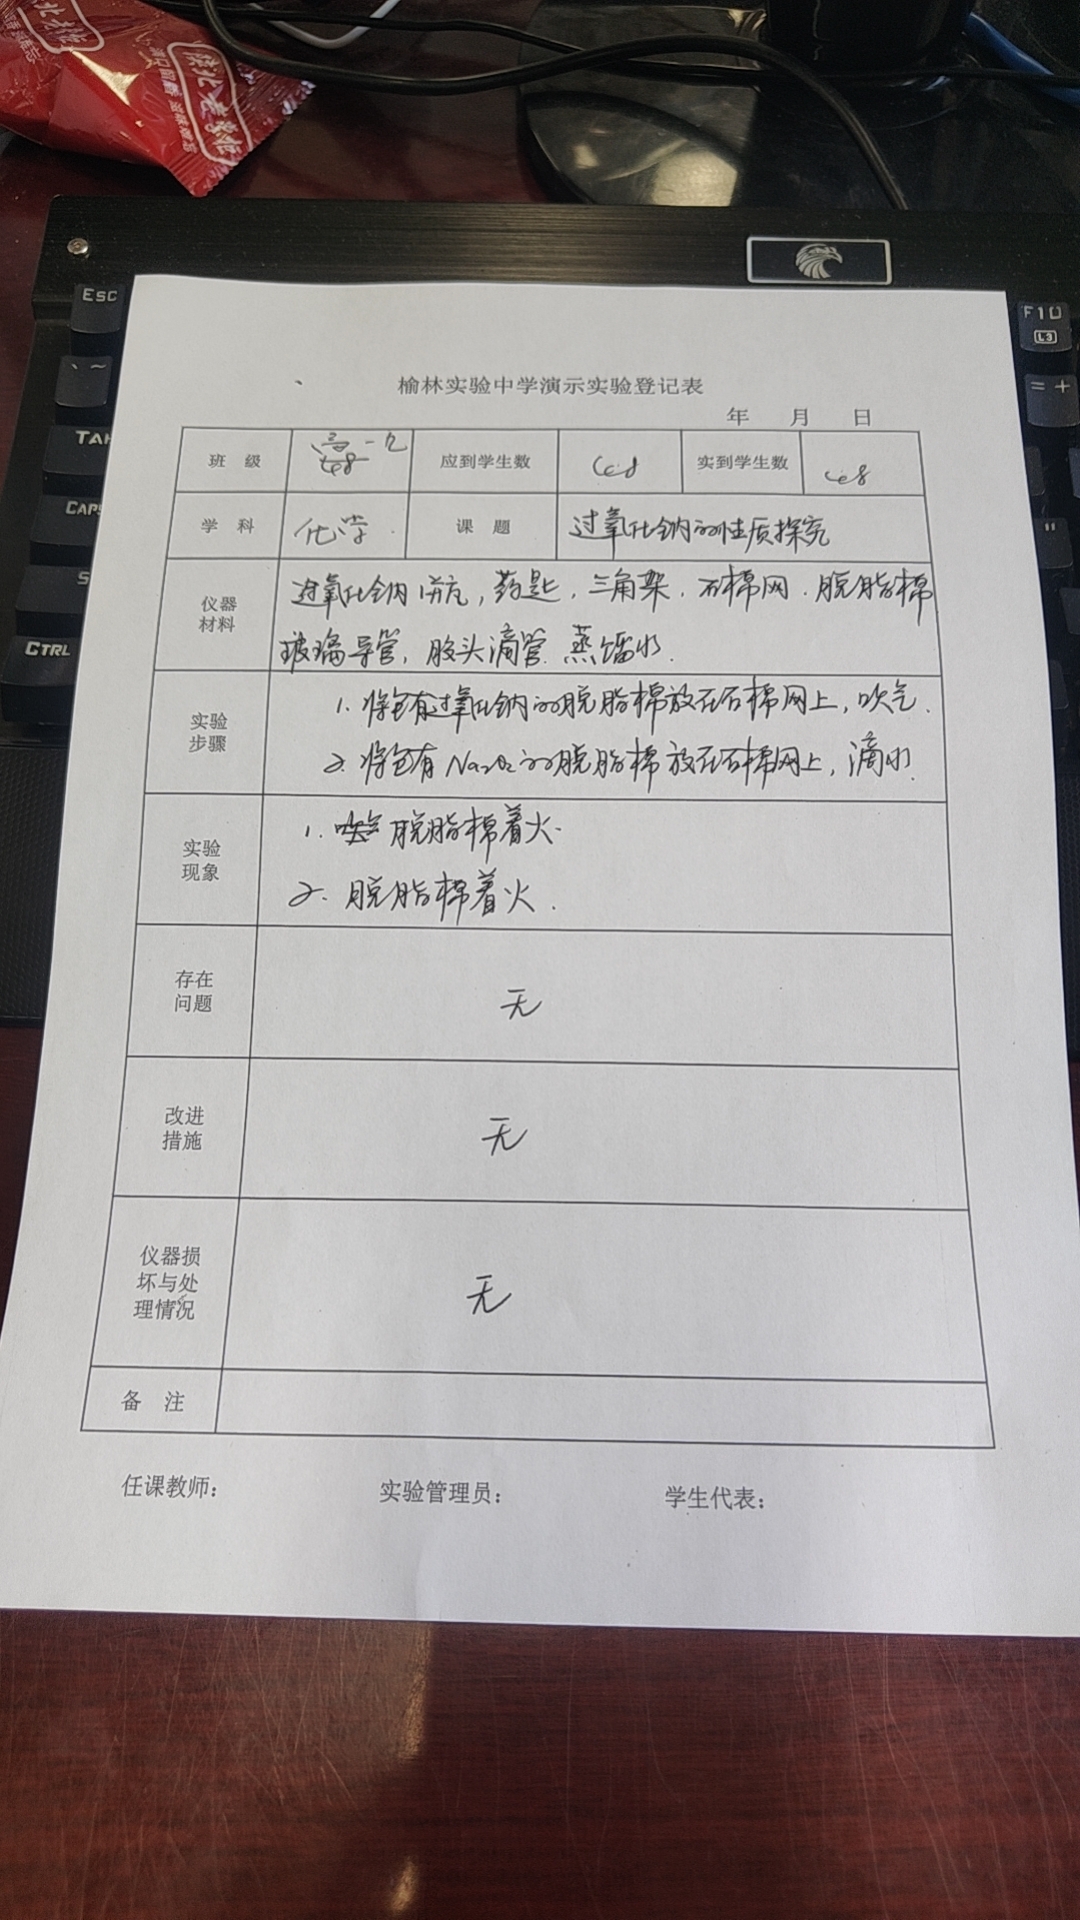 陕北老掌柜
Esc
F10
L3
~
= +
"
CTRL
榆林实验中学演示实验登记表
年 月 日
班 级 高一九 应到学生数 实到学生数
学 科 化学 课 题 过氧化钠的性质探究
仪器材料 过氧化钠1瓶, 药匙, 三角架, 石棉网, 脱脂棉
玻璃导管, 胶头滴管. 蒸馏水.
实验步骤 1. 将包有过氧化钠的脱脂棉放在石棉网上, 吹气.
2. 将包有Na₂O₂的脱脂棉放在石棉网上, 滴水.
实验现象 1. 脱脂棉着火.
2. 脱脂棉着火.
存在问题 无
改进措施 无
仪器损坏与处理情况 无
备 注
任课教师: 实验管理员: 学生代表: